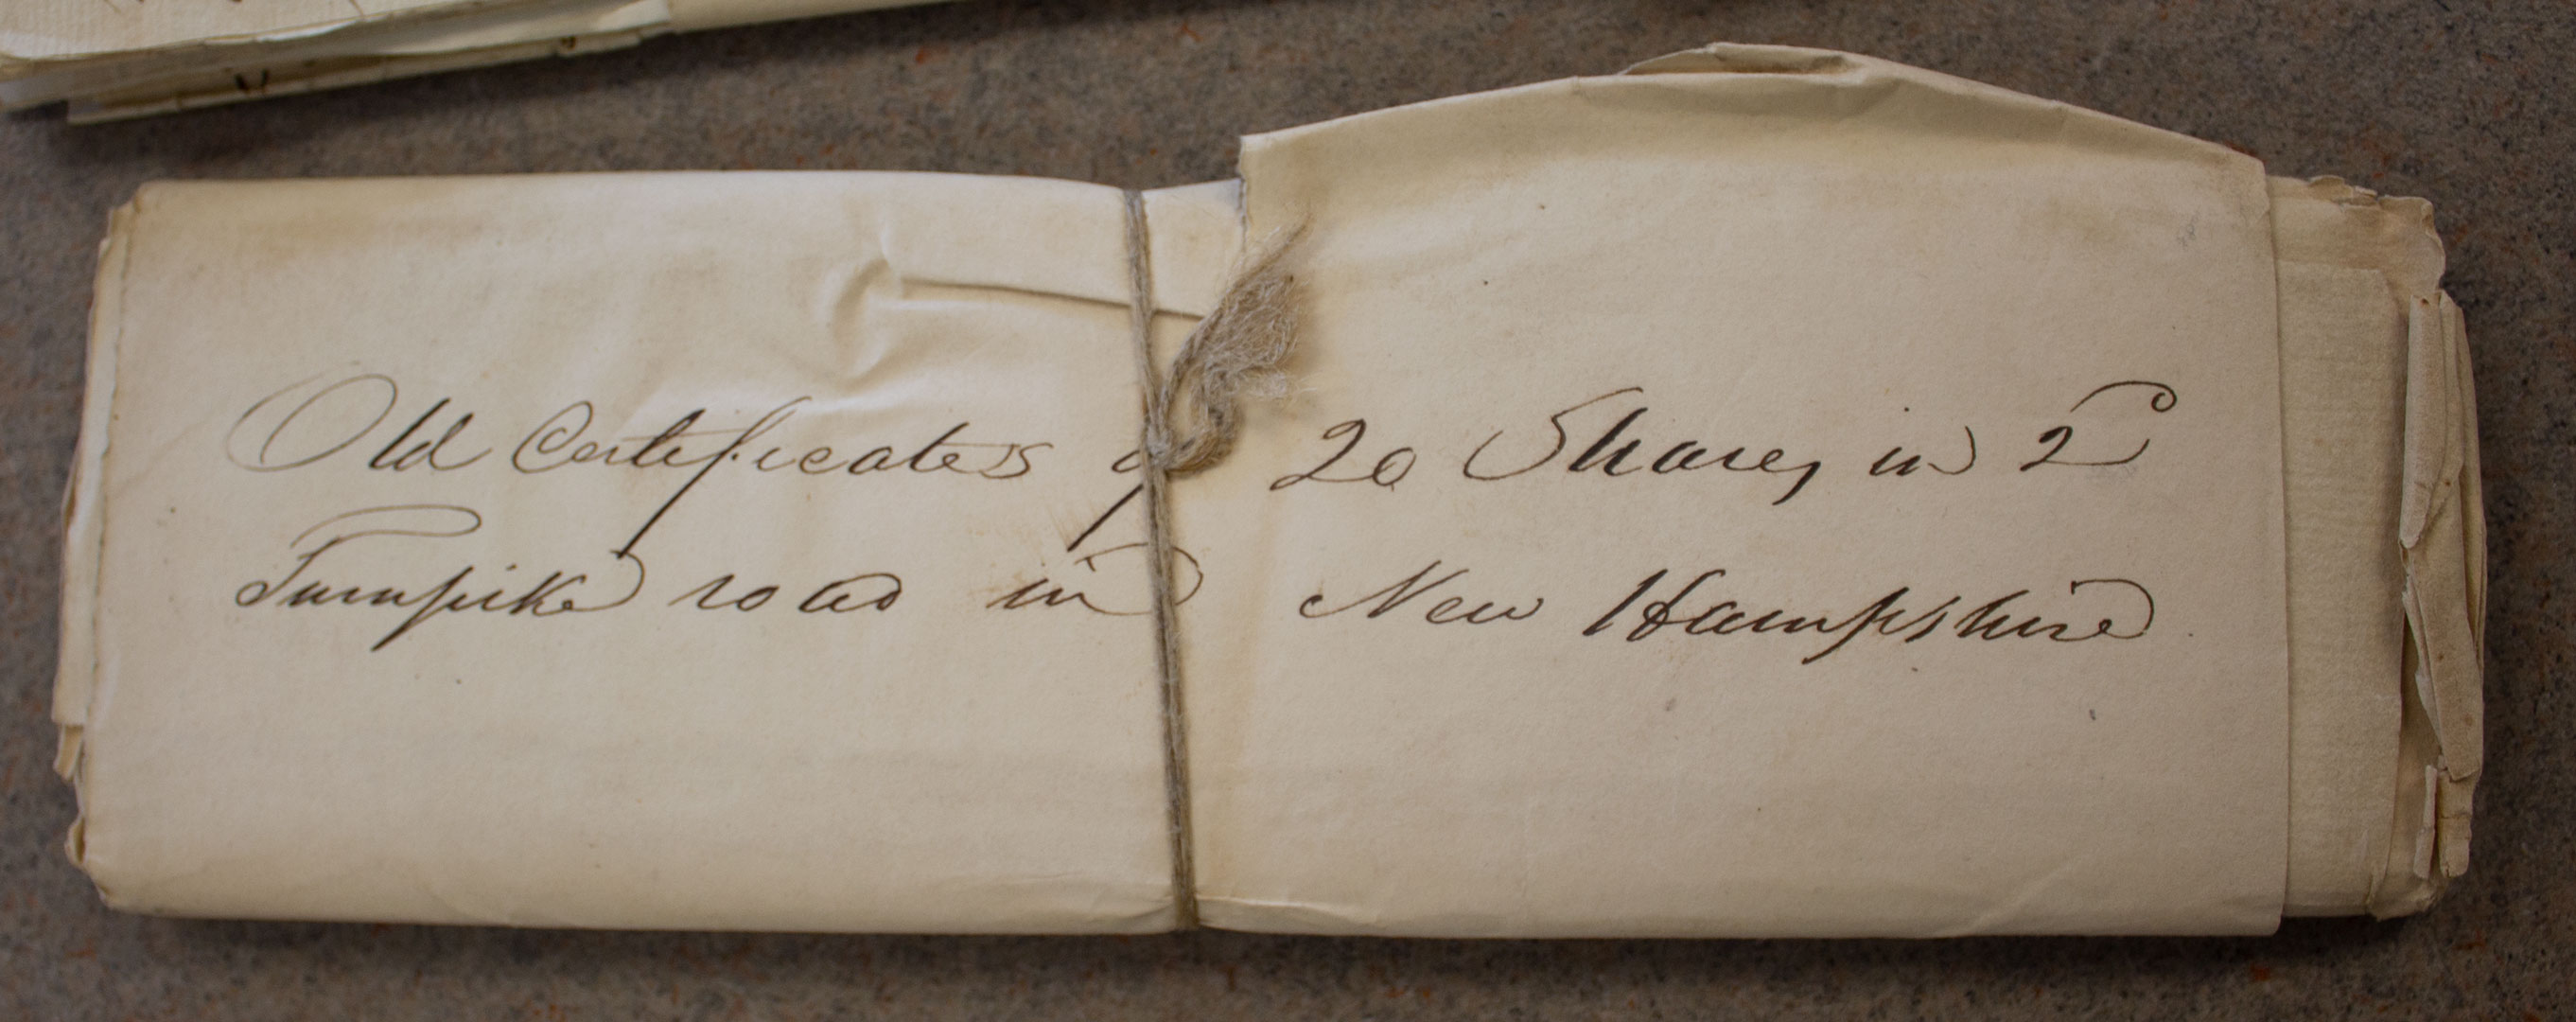 Old Certificates of 20 Shares in 2d
Turnpike road in New Hampshire